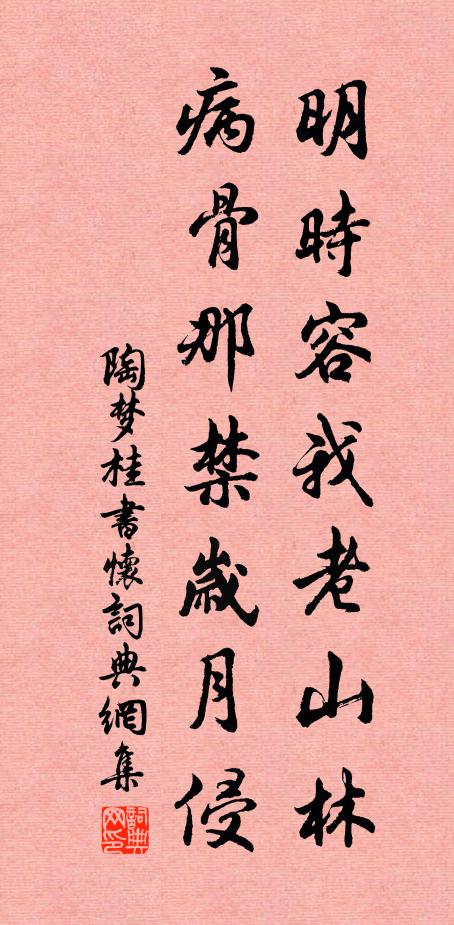 明時容我老山林
病骨那禁歲月侵
陶梦桂書懷詞典網集
詞典网印